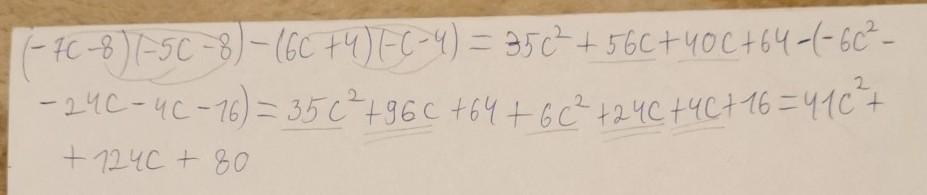 (-7c-8)(-5c-8)-(6c+4)(-c-4) = 35c²+56c+40c+64-(-6c²-
-24c-4c-16)=35c²+96c+64+6c²+24c+4c+16=41c²+
+124c+80